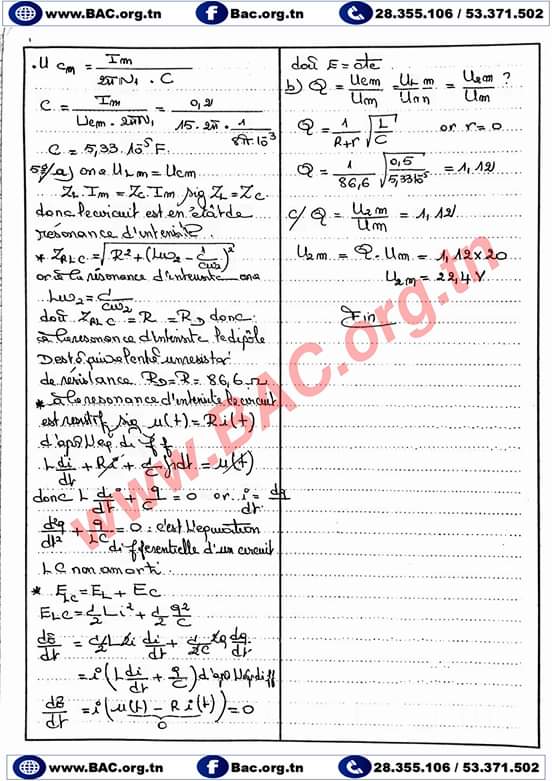 www.BAC.org.tn Bac.org.tn 28.355.106 / 53.371.502
. U cm = Im / 2πN1 . C
C = Im / Ucm . 2πN1 = 0,2 / 15 . 2π . 1/8π.10³
C = 5,33.10⁵ F.
5°/a) on a ULm = Ucm
ZL . Im = Zc . Im sig ZL = Zc
donc le circuit est en état de
résonance d'intensité.
* ZRLC = √(R² + (Lω2 - 1/Cω2)²
or à la résonance d'intensité on a
Lω2 = 1/Cω2
doù ZRLC = R = RD donc
à la résonance d'intensité le dipôle
D est équivalent à un resistor
de résistance RD = R = 86,6 Ω
* à la resonance d'intensité le circuit
est resitif sig u(t) = R i(t)
d'apré l'éq diff
L di/dt + Ri + 1/C ∫i dt = u(t)
donc L di/dt + q/C = 0 or i = dq/dt
d²q/dt² + q/LC = 0 : c'est l'equation
differentielle d'un circuit
LC non amorti.
* ELC = EL + EC
ELC = 1/2 L i² + 1/2 q²/C
dE/dt = 1/2 L 2i di/dt + 1/2C 2q dq/dt
= i (L di/dt + q/C) d'apré l'éq diff
dE/dt = i (u(t) - R i(t)) = 0
0
doù E = cte.
b) Q = Ucm/Um = ULm/Um = U2m/Um ?
Q = 1/R+r √(L/C) or r = 0
Q = 1/86,6 √(0,5/5,33.10⁵) = 1,12
c/ Q = U2m/Um = 1,12
U2m = Q . Um = 1,12 x 20
U2m = 22,4 V
Fin
www.BAC.org.tn
www.BAC.org.tn Bac.org.tn 28.355.106 / 53.371.502